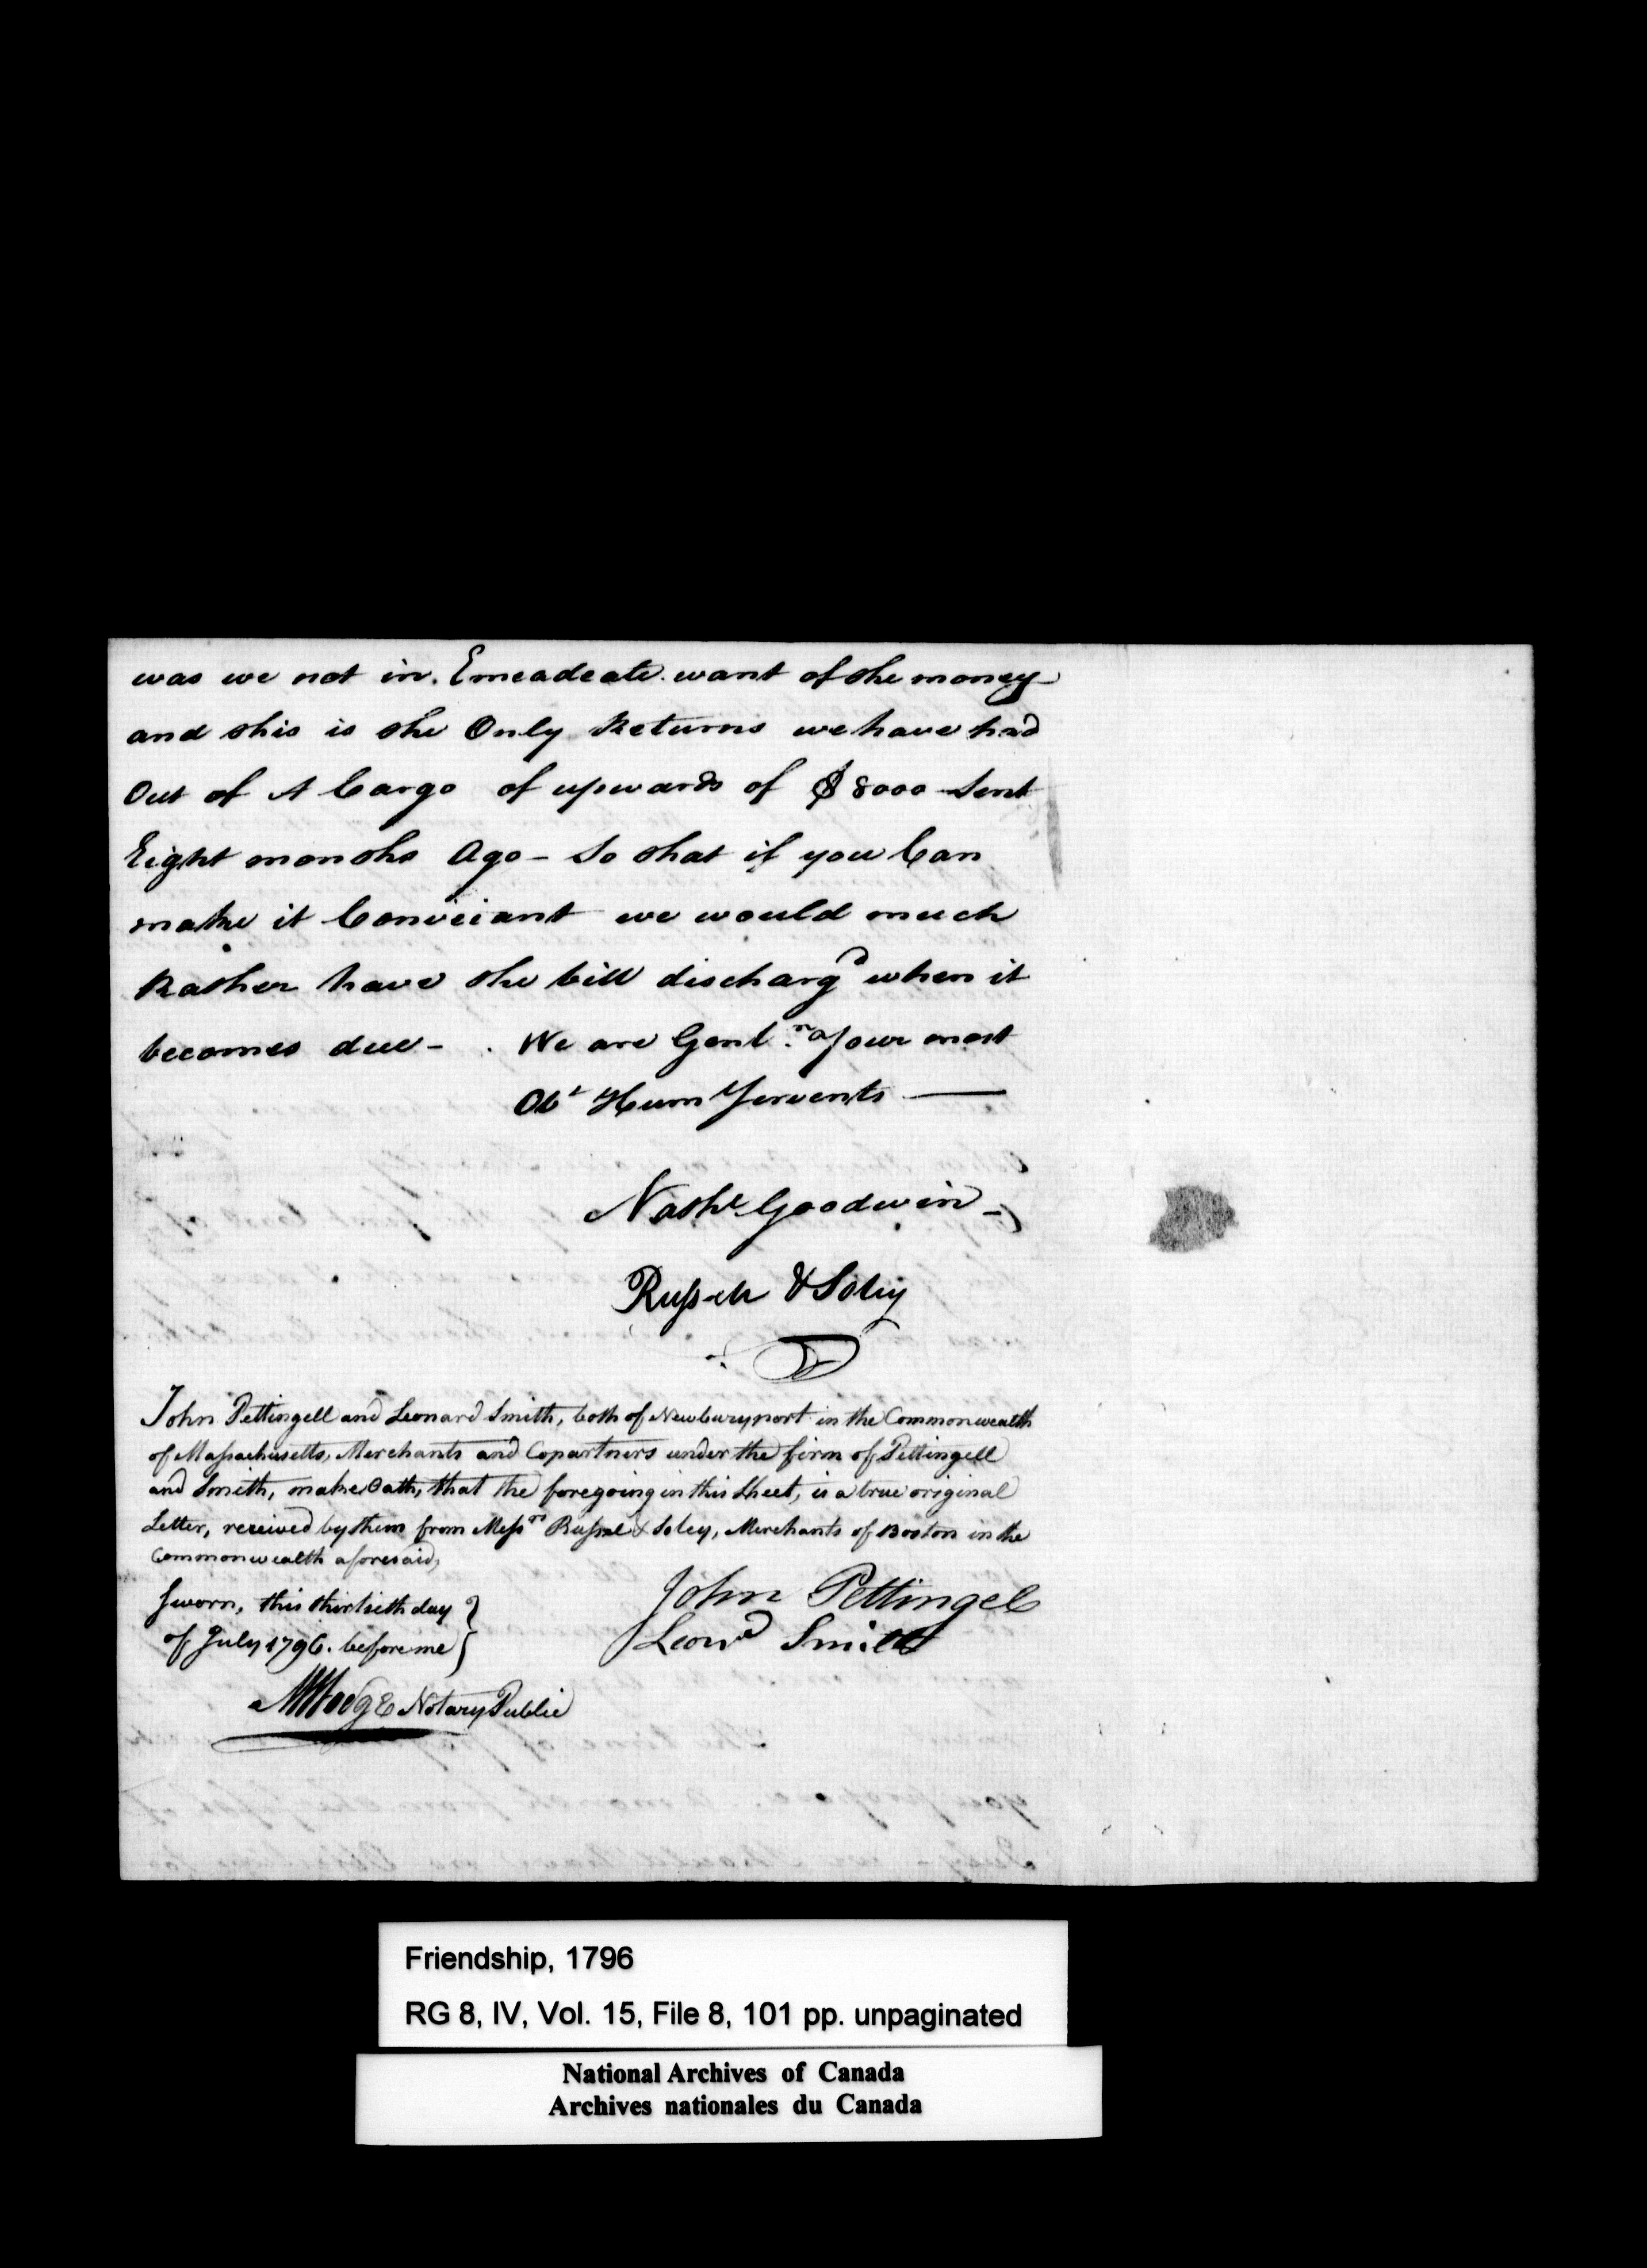 was we not in Emeadeate want of the money
and this is the Only Returns we have had
Out of A Cargo of upwards of $8000 Sent
Eight months Ago - So that if you Can
make it Conveiant we would much
Rather have the bill discharg'd when it
becomes due - We are Gentn. Your most
Obt Hum Servents
Nathl Goodwin
Russell & Soley
John Pettingell and Leonard Smith, both of Newburyport in the Commonwealth
of Massachusetts, Merchants and Copartners under the firm of Pettingell
and Smith, make Oath, that the foregoing in this Sheet, is a true original
Letter, received by them from Messrs Russel & Soley, Merchants of Boston in the
Commonwealth aforesaid,
Sworn, this thirtieth day
of July 1796. before me
John Pettingel
Leond Smith
M Hodge Notary Public
Friendship, 1796
RG 8, IV, Vol. 15, File 8, 101 pp. unpaginated
National Archives of Canada
Archives nationales du Canada